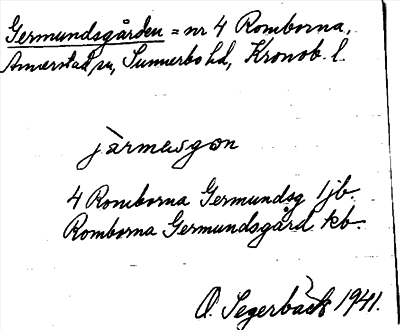 Germundsgården = nr 4 Romborna,
Annerstad sn, Sunnerbo hd, Kronob. l.
järmasgon
4 Romborna Germundsg 1 jb.
Romborna Germundsgård kb.
O. Segerbäck 1941.